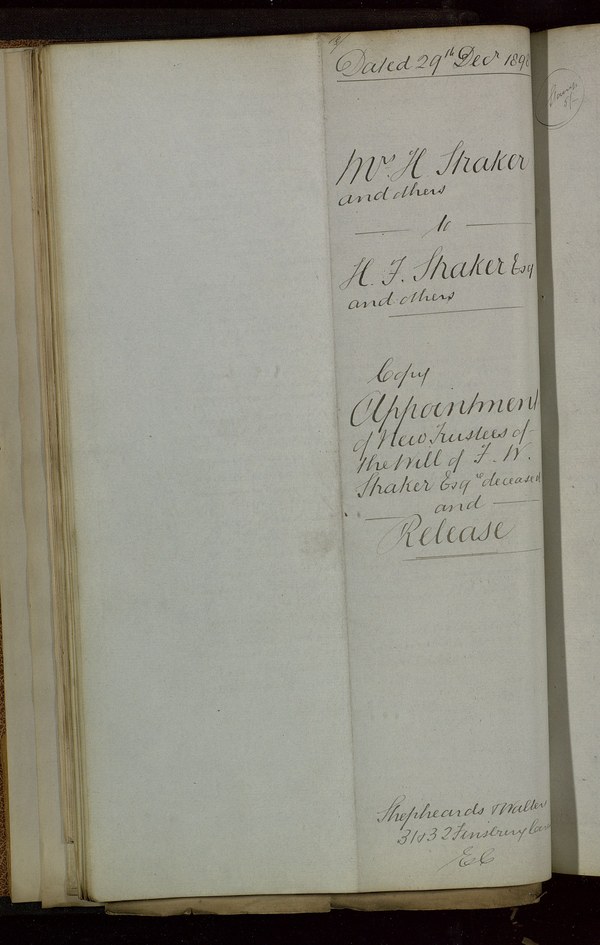 Dated 29th Decr 189
Mrs H Straker
and others
to
H. F. Straker Esq
and others
Copy
Appointment
of New Trustees of
the Will of F. W.
Straker Esqre deceased
and
Release
Shepheards & Walters
31 & 32 Finsbury
EC
Stamp